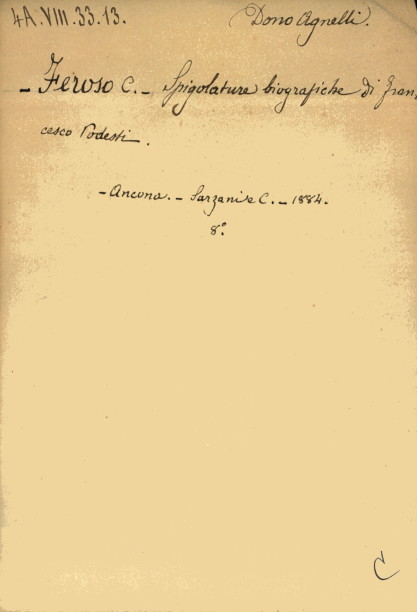 4A.VIII.33.13.
Dono Agnelli.
- Feroso C. - Spigolature biografiche di Fran,
cesco Podesti.
- Ancona. - Sarzani e C. - 1884.
8.°
C